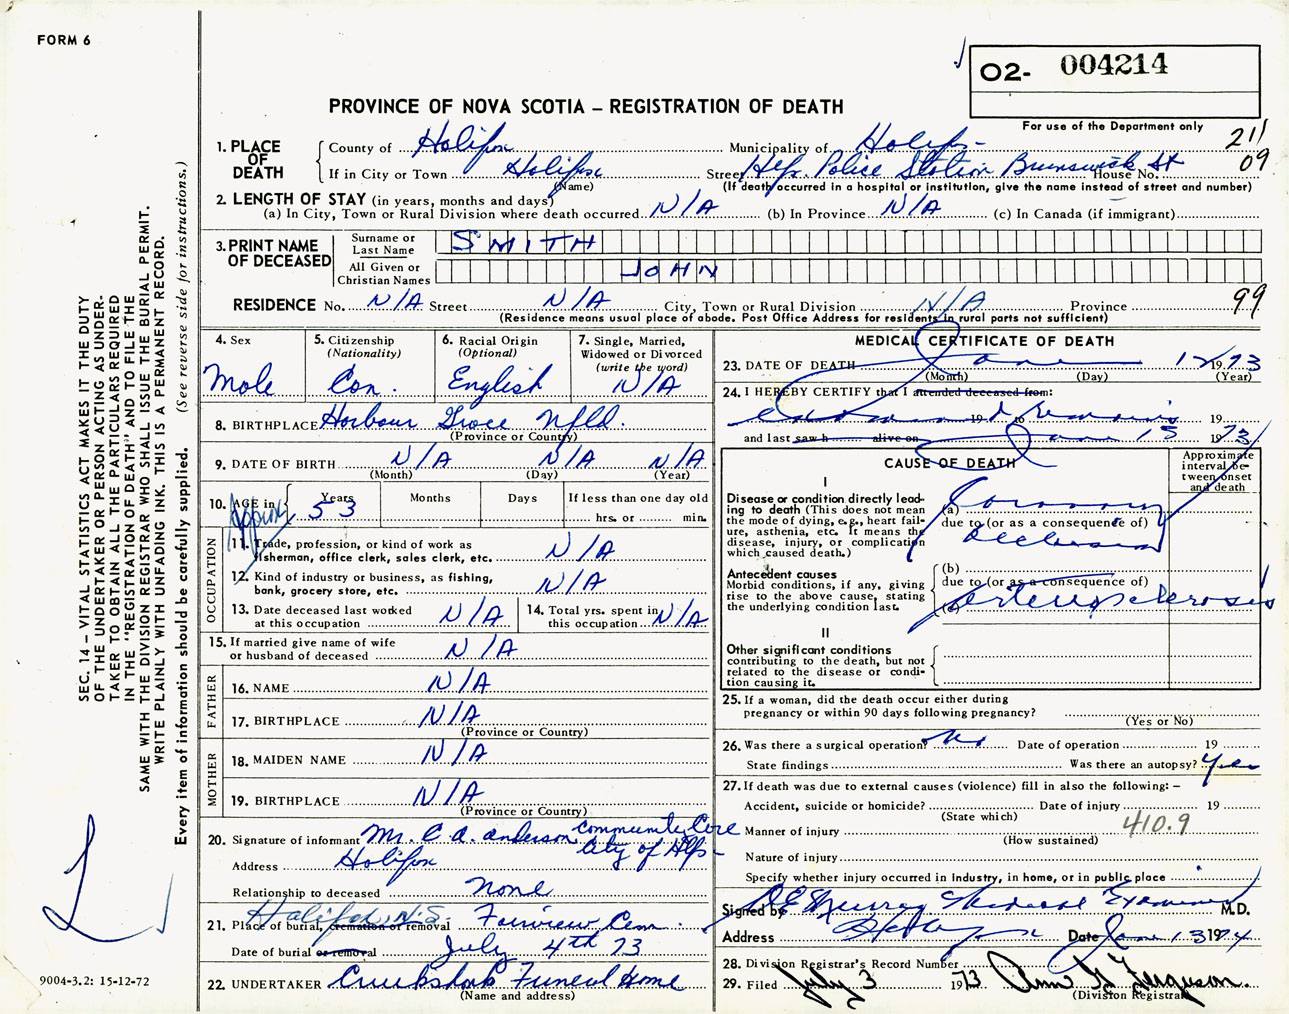 FORM 6
O2- 004214
PROVINCE OF NOVA SCOTIA – REGISTRATION OF DEATH
For use of the Department only
211
09
1. PLACE OF DEATH
County of Halifax Municipality of Halifax
If in City or Town Halifax Street Hfx. Police Station Brunswick St House No.
(Name) (If death occurred in a hospital or institution, give the name instead of street and number)
2. LENGTH OF STAY (in years, months and days)
(a) In City, Town or Rural Division where death occurred N/A (b) In Province N/A (c) In Canada (if immigrant)
3. PRINT NAME OF DECEASED
Surname or Last Name SMITH
All Given or Christian Names JOHN
RESIDENCE No. N/A Street N/A City, Town or Rural Division N/A Province 99
(Residence means usual place of abode. Post Office Address for residents in rural parts not sufficient)
4. Sex Male
5. Citizenship (Nationality) Can.
6. Racial Origin (Optional) English
7. Single, Married, Widowed or Divorced (write the word) N/A
8. BIRTHPLACE Harbour Grace Nfld.
(Province or Country)
9. DATE OF BIRTH N/A N/A N/A
(Month) (Day) (Year)
10. AGE in Approx. Years 53 Months Days If less than one day old hrs. or min.
OCCUPATION
11. Trade, profession, or kind of work as fisherman, office clerk, sales clerk, etc. N/A
12. Kind of industry or business, as fishing, bank, grocery store, etc. N/A
13. Date deceased last worked at this occupation N/A
14. Total yrs. spent in this occupation N/A
15. If married give name of wife or husband of deceased N/A
FATHER
16. NAME N/A
17. BIRTHPLACE N/A
(Province or Country)
MOTHER
18. MAIDEN NAME N/A
19. BIRTHPLACE N/A
(Province or Country)
20. Signature of informant Mr. C. A. Anderson Community Care
Address Halifax City of Hfx
Relationship to deceased None
21. Place of burial, cremation or removal Halifax, N.S. Fairview Cem.
Date of burial or removal July 4th 73
22. UNDERTAKER Cruikshank Funeral Home
(Name and address)
MEDICAL CERTIFICATE OF DEATH
23. DATE OF DEATH June 12 1973
(Month) (Day) (Year)
24. I HEREBY CERTIFY that I attended deceased from:
examined Remains 19 19
and last saw h alive on June 13 1973
CAUSE OF DEATH
Approximate interval between onset and death
I
Disease or condition directly leading to death (This does not mean the mode of dying, e.g., heart failure, asthenia, etc. It means the disease, injury, or complication which caused death.)
(a) Coronary
due to (or as a consequence of)
Occlusion
Antecedent causes
Morbid conditions, if any, giving rise to the above cause, stating the underlying condition last.
(b)
due to (or as a consequence of)
(c) arteriosclerosis
II
Other significant conditions
contributing to the death, but not related to the disease or condition causing it.
25. If a woman, did the death occur either during pregnancy or within 90 days following pregnancy?
(Yes or No)
26. Was there a surgical operation? No Date of operation 19
State findings Was there an autopsy? Yes
27. If death was due to external causes (violence) fill in also the following: –
Accident, suicide or homicide? Date of injury 19
(State which)
Manner of injury 410.9
(How sustained)
Nature of injury
Specify whether injury occurred in industry, in home, or in public place
Signed by Murray Medical Examiner M.D.
Address Date June 13 1974
28. Division Registrar's Record Number
29. Filed July 3 1973 Ann G Ferguson
(Division Registrar)
SEC. 14 – VITAL STATISTICS ACT MAKES IT THE DUTY
OF THE UNDERTAKER OR PERSON ACTING AS UNDER-
TAKER TO OBTAIN ALL THE PARTICULARS REQUIRED
IN THE "REGISTRATION OF DEATH" AND TO FILE THE
SAME WITH THE DIVISION REGISTRAR WHO SHALL ISSUE THE BURIAL PERMIT.
WRITE PLAINLY WITH UNFADING INK. THIS IS A PERMANENT RECORD.
Every item of information should be carefully supplied. (See reverse side for instructions.)
9004-3.2: 15-12-72